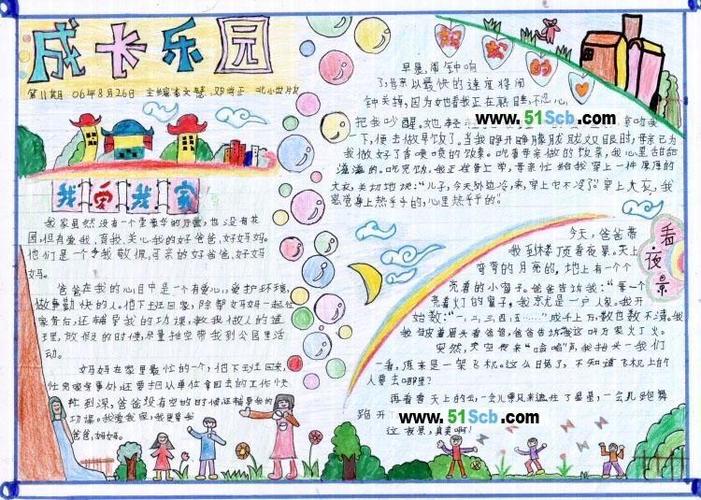 成长乐园
第11期 06年8月26日
我爱我家
我家虽然没有
园,但有爱我、育我、关心我的好爸爸,好妈妈。
他们是一个令我敬佩,可亲的好爸爸,好妈
妈。
爸爸在我的心目中是一个有爱心,爱护环境,
做事勤快的人。但下班回家,除帮妈妈一起忙
家务后,还辅导我的功课,教我做人的道
理,放假的时候,尽量抽空带我到公园里活
动。
妈妈在家里最忙的一个,但下班回来,
忙完家务事外,还要把从单位拿回去的工作忙
到深,爸爸没有空的时候还辅导我的
功课。我爱我家,我更爱我
爸爸,妈妈。
妈妈的爱
早晨,闹钟响
了,母亲以最快的速度将闹
钟关掉,因为她看我正在熟睡,不忍心
把我吵醒。她轻
www.51Scb.com
一下,便去做早饭了。当我睁开睁朦胧双眼时,母亲已为
我做好了香喷喷的饭菜。吃着母亲做的饭菜,我心里甜甜
滋滋的。吃完饭,我正准备上学,母亲忙给我穿上一件厚厚的
大衣,关切地说:“儿子,今天外边冷,来,穿上它不冷了。”穿上大衣,我
感觉身上热乎乎的,心里热乎乎的。
看夜景
今天,爸爸带
我到楼顶看夜景。天上
弯弯的月亮的,地上有一个个
亮着的小窗子。爸爸告诉我:“每一个
亮着灯的窗子,就是一户人家。我开
始数:“一、二、三、四、五……”成千上万,数也数不清。我
看着爸爸,爸爸告诉我这叫万家灯火。
突然,天空传来“嗡嗡”声,我抬头一
看,原来是一架飞机。这么晚了,不知道飞机上的
人要去哪里?
再看看天上的云,一会儿
跑开
www.51Scb.com
这夜景,真美啊!